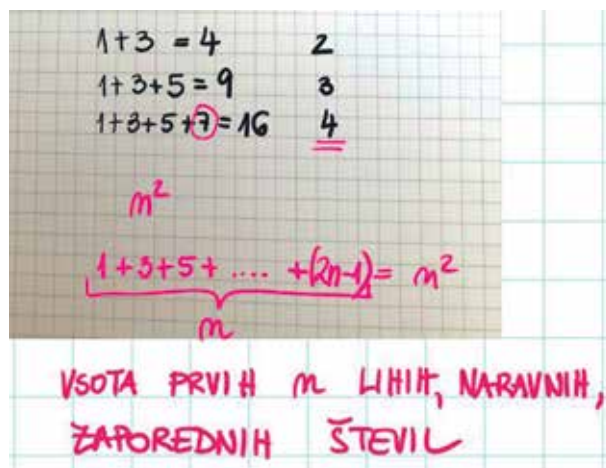 1+3 = 4 2
1+3+5 = 9 3
1+3+5+7 = 16 4
n²
1+3+5+ .... +(2n-1) = n²
n
VSOTA PRVIH n LIHIH, NARAVNIH,
ZAPOREDNIH ŠTEVIL